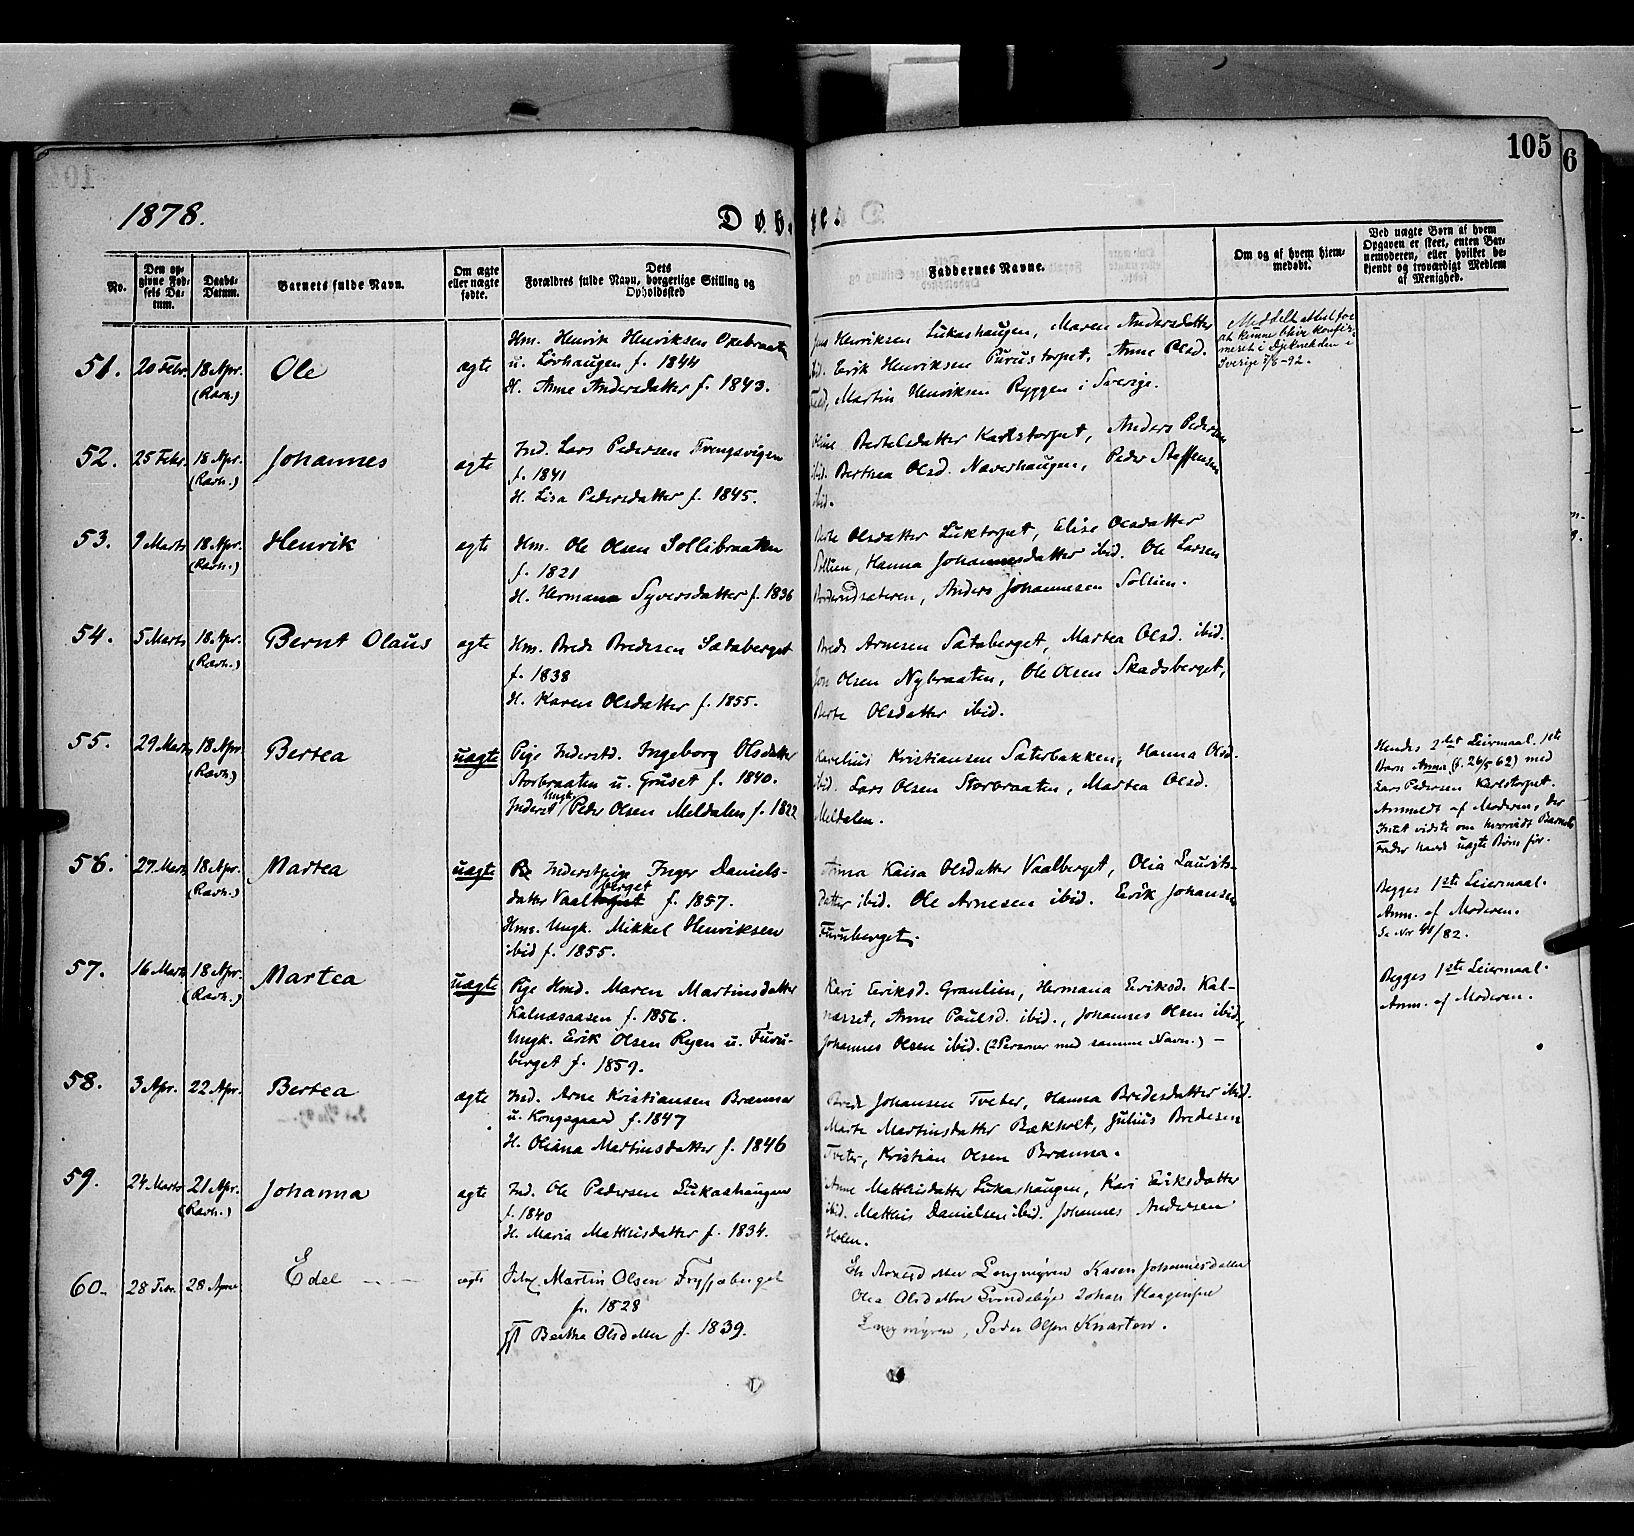 105
6
1878.
Døbte.
No.
Den opgivne Fødsels Datum.
Daabs-Datum.
Barnets fulde Navn.
Om ægte eller uægte fødte.
Dets Forældres fulde Navn, borgerlige Stilling og Opholdssted
Faddernes Navne.
Om og af hvem hjemmedøbt.
Ved uægte Børn af hvem Opgaven er skeet, enten Barnemoderen, eller hvilket bekjendt og troværdigt Medlem af Menighed.
51. 20 Febr. 18 Apr. (Ravh.) Ole ægte
Hm. Henrik Henriksen Oxebraaten
u. Lövhaugen f. 1844
H. Anne Andersdatter f. 1843.
Henriksen Lukashaugen, Maren Andersdatter
ibid. Erik Henriksen Purustorpet, Anne Olsd.
Martin Henriksen Ryggen i Sverige.
Meddelt attest for
at kunne blive konfir-
meret i Dykvekden i
Sverige 7/8-92.
52. 25 Febr. 18 Apr. (Ravh.) Johannes ægte
Ind. Lars Pedersen Trengsvigen
f. 1841
H. Lisa Pedersdatter f. 1845.
Oline Bertelsdatter Karlstorpet, Anders Pedersen
ibid. Berthea Olsd. Næverhaugen, Peder Steffensen
ibid.
53. 9 Marts 18 Apr. (Ravh.) Henrik ægte
Hm. Ole Olsen Sollibraaten
f. 1821
H. Hermana Syversdatter f. 1836
Berte Olsdatter Luktorpet, Elise Olsdatter
Sollien, Hanna Johannesdatter ibid. Ole Larsen
Anders Johannesen Sollien.
54. 5 Marts 18 Apr. (Ravh.) Bernt Olaus ægte
Hm. Brede Bredesen Sætaberget
f. 1838
H. Karen Olsdatter f. 1855.
Brede Arnesen Sætaberget, Martea Olsd. ibid.
Jon Olsen Nybraaten, Ole Olsen Skadsberget,
Berte Olsdatter ibid.
55. 29 Marts 18 Apr. (Ravh.) Bertea uægte
Pige Inderstd. Ingeborg Olsdatter
Storbraaten u. Gruset f. 1840.
Inderst Ungk. Peder Olsen Meldalen f. 1822
Karelius Kristiansen Sæterbakken, Hanna Olsd.
ibid. Lars Olsen Storbraaten, Martea Olsd.
Meldalen.
Hendes 2det Leiermaal. 1ste
Barn Anna (f. 26/5 62) med
Lars Pedersen Karlstorpet.
Anmeldt af Moderen, der
Intet vidste om hvorvidt Barnets
Fader havde uægte Børn før.
56. 27 Marts 18 Apr. (Ravh.) Martea uægte
Inderstpige Inger Daniels-
datter Vaalberget f. 1857.
Hms. Ungk. Mikkel Henriksen
ibid f. 1855.
Anna Kaisa Olsdatter Vaalberget, Olia Laurits-
datter ibid. Ole Arnesen ibid. Eerik Johansen
Furuberget.
Begges 1ste Leiermaal.
Anm. af Moderen.
Se Nr 41/82.
57. 16 Marts 18 Apr. (Ravh.) Martea uægte
Pige Hmd. Maren Martinsdatter
Kalnæsaasen f. 1856.
Ungk. Erik Olsen Ryen u. Furu-
berget f. 1859.
Kari Eeriksd. Granlien, Hermana Eeriksd. Kal-
næsset, Anne Paulsd. ibid., Johannes Olsen ibid.,
Johannes Olsen ibid. (2 Personer med samme Navn.) —
Begges 1ste Leiermaal.
Anm. af Moderen.
58. 3 Apr. 22 Apr. Bertea ægte
Ind. Arne Kristiansen Brænna
u. Kongsgaard f. 1847
H. Oliana Martinsdatter f. 1846
Brede Johansen Tveter, Hanna Bredesdatter ibid.
Marte Martinsdatter Bækholt, Julius Bredesen
Tveter, Kristian Olsen Brænna.
59. 24 Marts 21 Apr. (Ravh.) Johanna ægte
Ind. Ole Pedersen Lukashaugen
f. 1840
H. Maria Mathisdatter f. 1834.
Anne Mathisdatter Lukashaugen, Kari Eeriksdatter
ibid. Mathis Danielsen ibid. Johannes Andersen
Holen.
60. 28 Febr. 28 April Edel — — ægte
Martin Olsen Frysjaberget
f. 1828
H Bertha Olsdatter f. 1839.
Arnesdatter Langmyren Karen Johannesdatter
Olea Olsdatter Svendsbye Johan Haagensen
Langmyren, Peder Olsen Knarten.